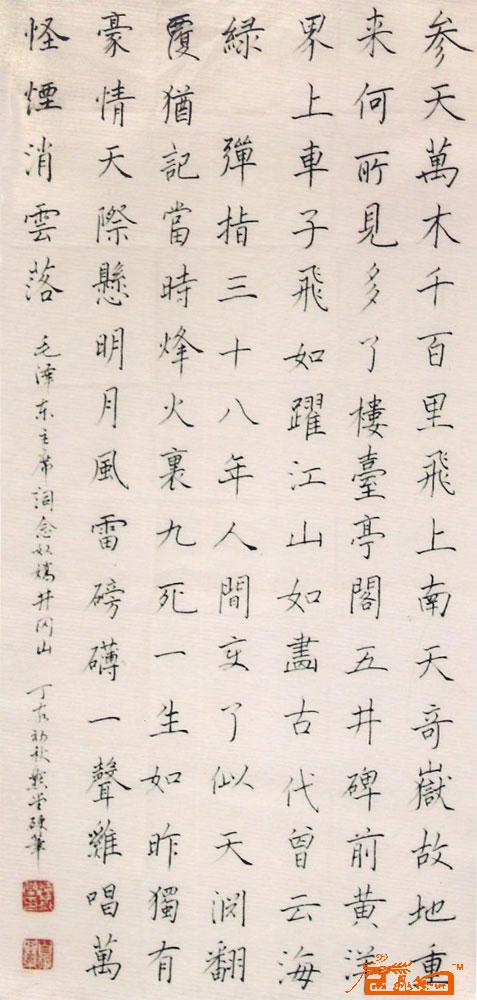 参天萬木千百里飛上南天奇嶽故地重
来何所見多了樓臺亭閣五井碑前黄洋
界上車子飛如躍江山如畫古代曾云海
緑 彈指三十八年人間变了似天渊翻
覆猶記當時烽火裏九死一生如昨獨有
豪情天際懸明月風雷磅礴一聲雞唱萬
怪煙消雲落 毛泽东主席詞念奴嬌井冈山 丁亥初秋堂硬筆